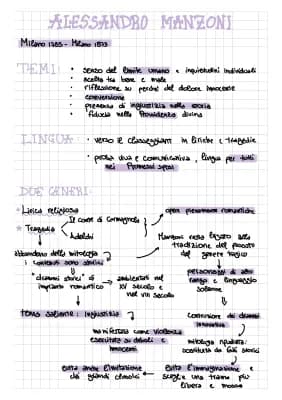 ALESSANDRO MANZONI
Milano 1785 - Milano 1873
TEMI:
• senso del limite umano e inquietudini individuali
• scelta tra bene e male
• riflessione su perché del dolore innocente
• conversione
• presenza di ingiustizia nella storia
• fiducia nella Provvidenza divina
LINGUA:
• verso il classeggiare in liriche e tragedie
• prosa viva e comunicativa, lingua per tutti
nei Promessi Sposi
DUE GENERI:
* Lirica religiosa
* Tragedia
Il conte di Carmagnola
Adelchi
opere pienamente romantiche
Manzoni resta legato alla
tradizione del passato
del genere tragico
abbandono della mitologia
i contenuti sono storici
"drammi storici" di
impianto romantico
ambientati nel
XV secolo e
nel VIII secolo
personaggi di alto
rango e linguaggio
solenne
tema saliente: ingiustizia
concezione di dramma
manifestata come violenza
esercitata su deboli e
innocenti
mitologia ripudiata:
sostituita da fatti storici
evita anche l'imitazione
dei grandi classici
evita l'immaginazione e
sceglie una trama più
libera e mossa